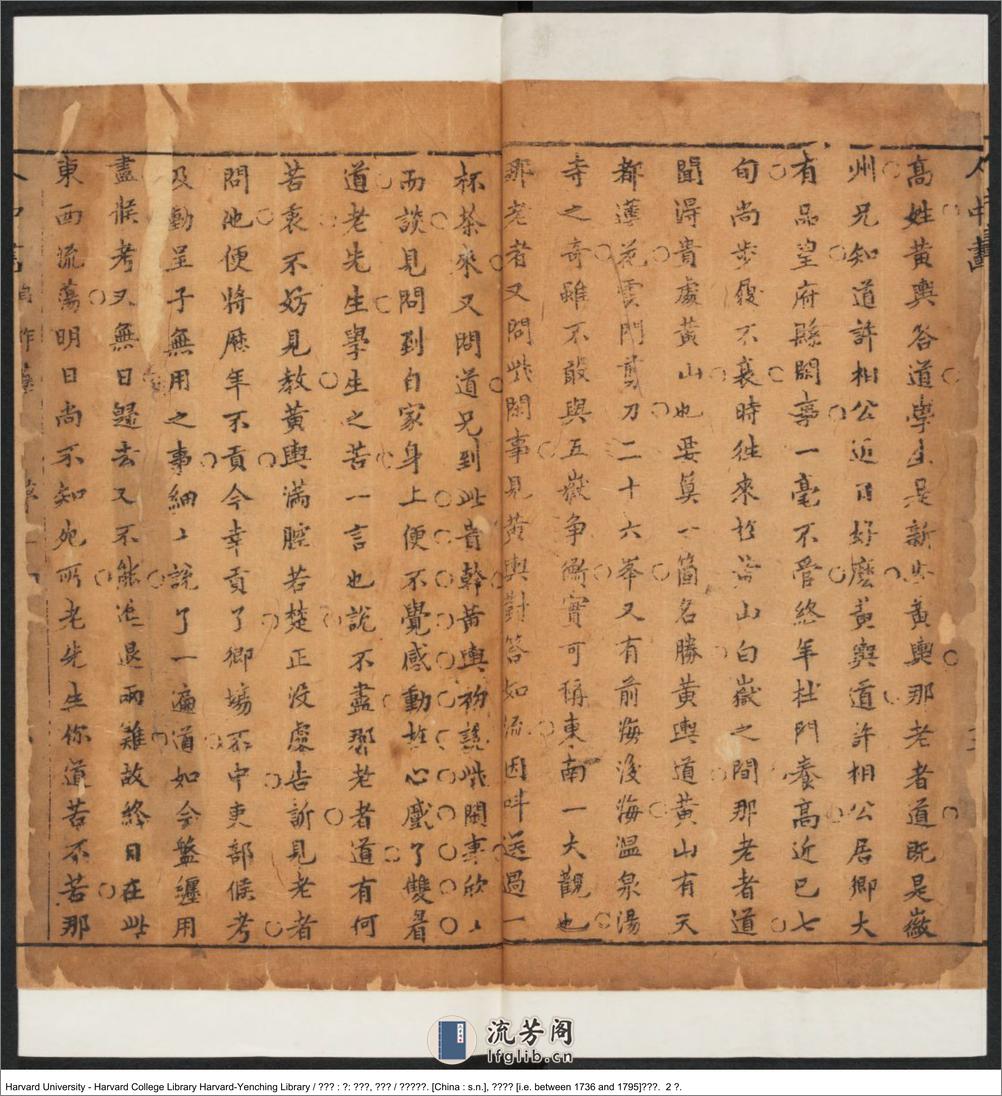 人中畫
高姓黄輿答道學生是新安黄輿那老者道既是徽
州兄知道許相公近日好麽黄輿道許相公居鄉大
有品望府縣閑事一毫不管終年杜門養高近已七
旬尚步履不衰時徃來於黄山白嶽之間那老者道
聞得貴處黄山也要筭一箇名勝黄輿道黄山有天
都蓮花雲門剪刀二十六峯又有前海後海温泉湯
寺之奇雖不敢與五嶽争衡實可稱東南一大觀也
那老者又問些閑事見黄輿對答如流因呌送過一
杯茶來又問道兄到此貴幹黄輿初説些閑事欣〻
而談見問到自家身上便不覺感動於心感了雙眉
道老先生學生之苦一言也説不盡那老者道有何
苦衷不妨見教黄輿滿腔苦楚正没處告訴見老者
問他便將歷年不貢今幸貢了鄉塲不中吏部候考
及動呈子無用之事細〻説了一遍道如今盤纒用
盡候考又無日歸去又不能進退兩難故終日在此
東西流蕩明日尚不知死所老先生你道苦不苦那
人中畫
流芳阁
lfglib.cn
Harvard University - Harvard College Library Harvard-Yenching Library / ??? : ?: ???, ??? / ?????. [China : s.n.], ???? [i.e. between 1736 and 1795]???.  2 ?.